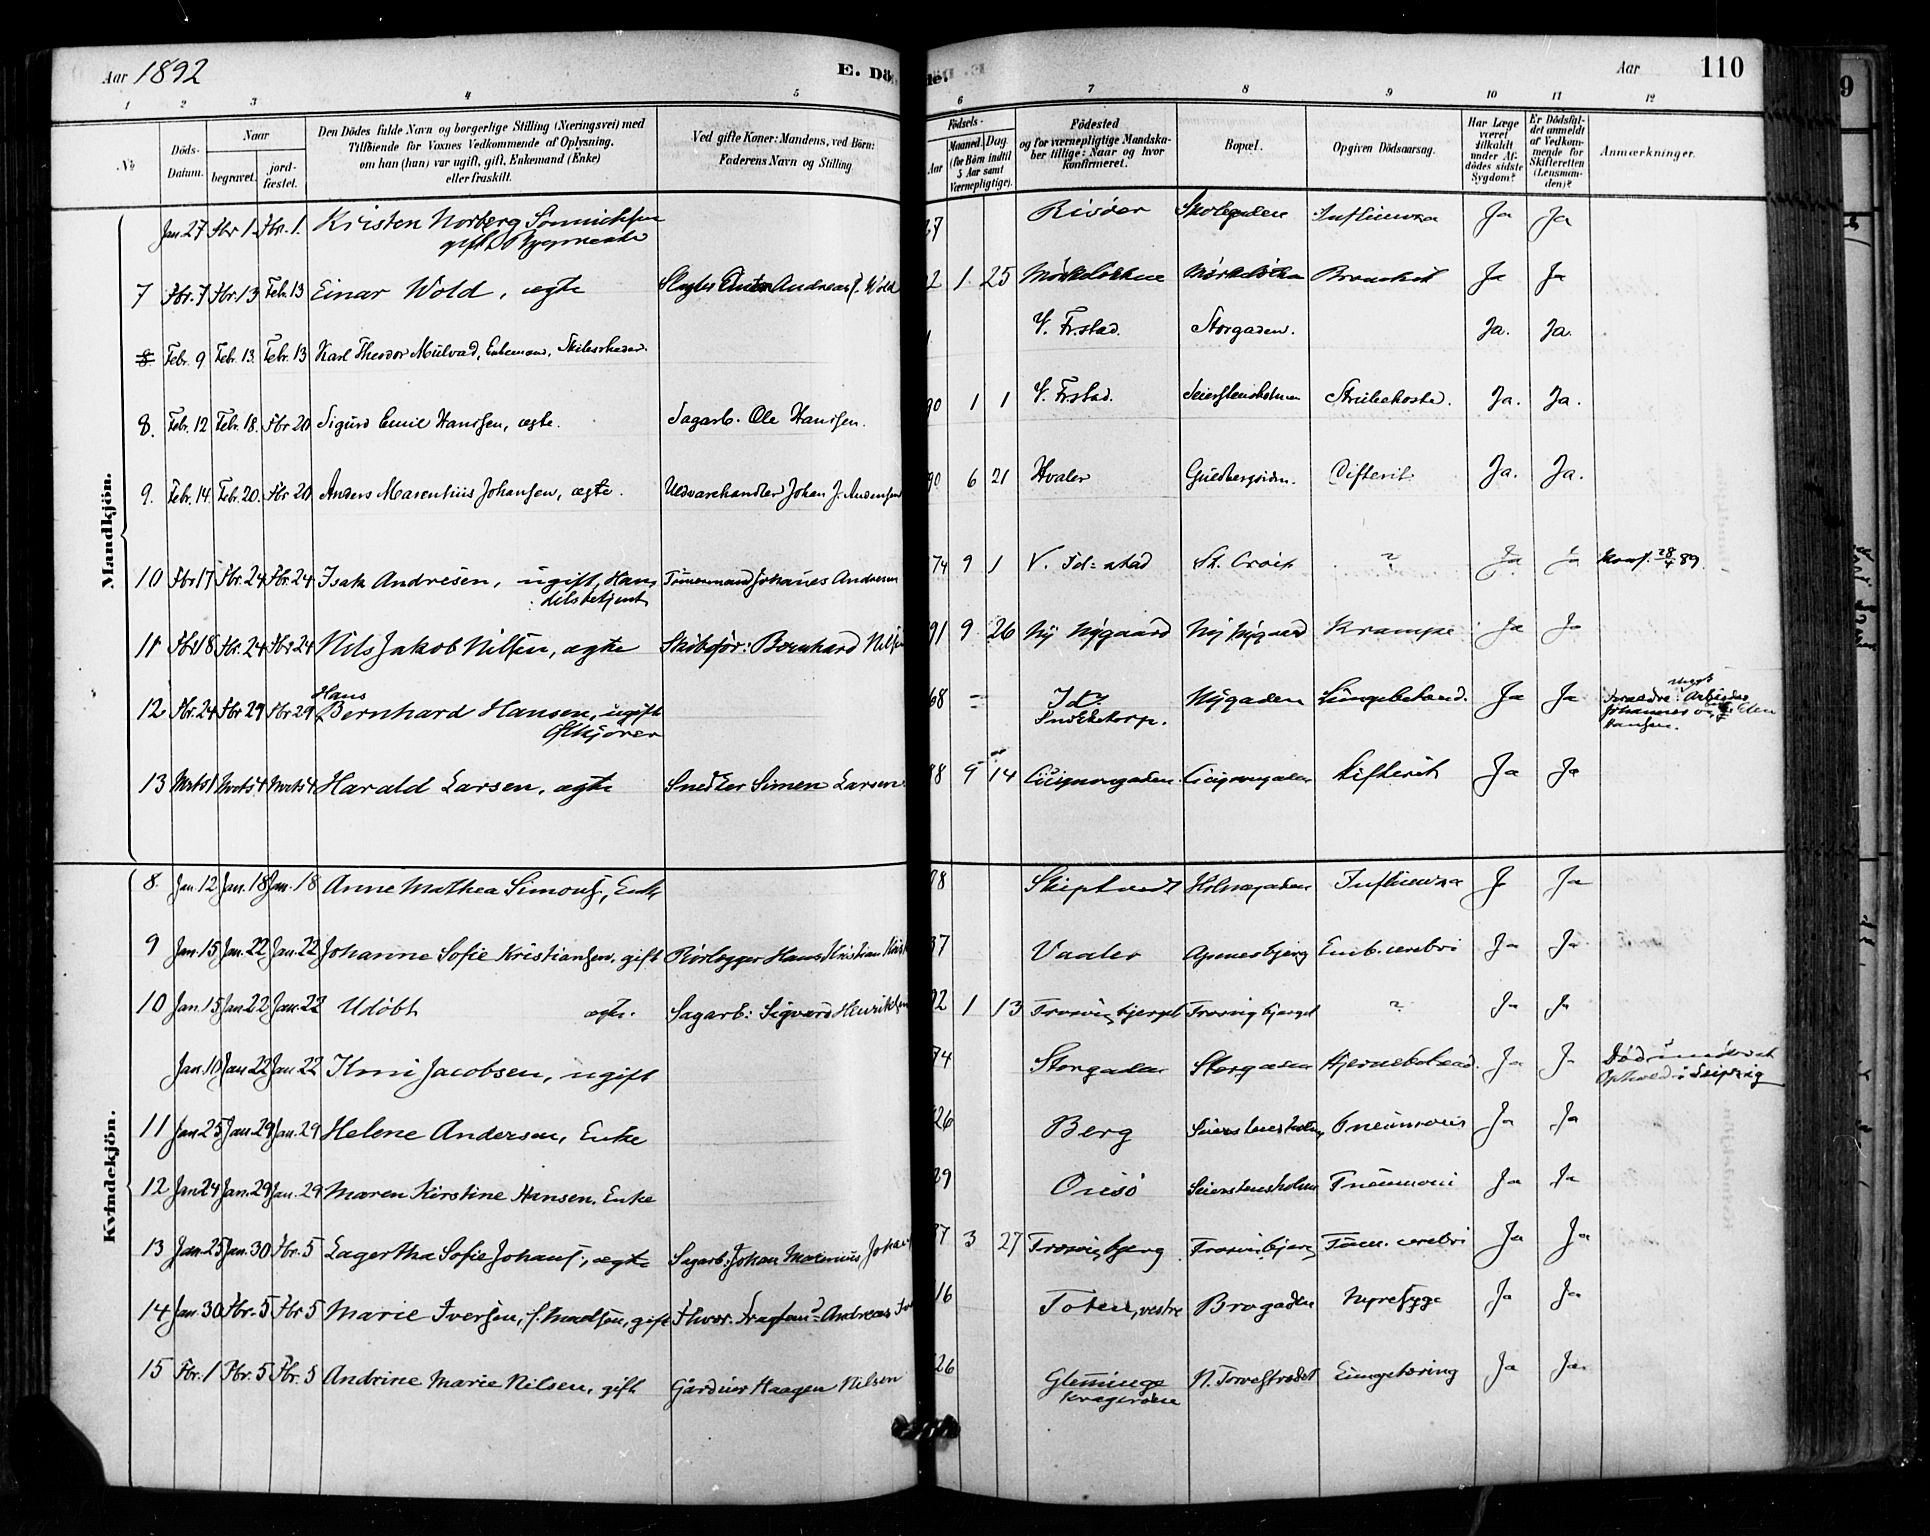 Aar 1892
E. Dö
de.
Aar
110
1 2 3 4 5 6 7 8 9 10 11 12
No
Döds-Datum.
Naar
begravet.
jord-fæstet.
Den Dödes fulde Navn og borgerlige Stilling (Næringsvei) med
Tilföiende for Voxnes Vedkommende af Oplysning,
om han (hun) var ugift, gift, Enkemand (Enke)
eller fraskilt.
Ved gifte Koner: Mandens, ved Börn:
Faderens Navn og Stilling.
Födsels-
Aar
Maaned.
Dag.
(for Börn indtil
5 Aar samt
Værnepligtige).
Födested
og for værnepligtige Mandska-
ber tillige: Naar og hvor
konfirmeret.
Bopæl.
Opgiven Dödsaarsag.
Har Læge
været
tilkaldt
under Af-
dödes sidste
Sygdom?
Er Dödsfal-
det anmeldt
af Vedkom-
mende for
Skifteretten
(Lensman-
den)?
Anmærkninger.
Mandkjön.
Jan. 27 Fbr 1. Fbr. 1. Kristen Norberg Sönnichsen 27 Risöer Skolegaden Influenza Ja Ja
gift
7 Fbr. 7 Fbr. 13 Feb. 13 Einar Wold, ægte Andreas Wold 2 1 25 Ja Ja
8. Febr. 9 Febr. 13. Febr. 13 Karl Theodor Mulvad, Enkemand, V. Fr.stad. Storgaden. Ja. Ja.
8. Febr. 12 Febr. 18. Fbr 20 Sigurd Emil Hanssen, ægte. Sagarb. Ole Hanssen. 90 1 1 V. Frstad. Seierstensholmen Strubehoste. Ja. Ja.
9. Febr. 14. Febr. 20. Fbr 20 Anders Marentius Johansen, ægte. Uldvarehandler Johan J. 90 6 21 Hvaler Difterit. Ja. Ja.
10 Fbr 17 Fbr. 24 Fbr. 24 Isak Andresen, ugift, Han-
delsbetjent Tömmermand Johanes Andresen 74 9 1 St. Croix ? Ja Ja Konf. 28/4 89.
11 Fbr 18 Fbr. 24 Fbr 24 Nils Jakob Nilsen, ægte Skibsför: Bernhard Nilsen 91 9 26 Ny Nygaard Ny Nygaard Krampe Ja Ja
Hans
12 Fbr. 24 Fbr 29 Fbr 29 Bernhard Hansen, ugift 68 = Id? Nygaden Lungebetænd. Ja Ja Forældre: Arbeider
Johannes og Elen
Hansen.
13 Marts 1 Marts 4 Marts 4 Harald Larsen, ægte Snedker Simen Larsen. 88 9 14 Difterit Ja Ja
Kvindekjön.
8. Jan. 12 Jan. 18 Jan. 18 Anne Mathea Simons., Enke Skiptvedt Holmegaden Influenza Ja
9 Jan. 15 Jan. 22 Jan. 22 Johanne Sofie Kristiansen, gift Rörlægger Hans Kristian 37 Vaaler Apenesbjerg Emb. cerebri Ja Ja
10 Jan. 15 Jan. 22 Jan. 22 Udöbt ægte. Sagarb: Sigvard Henriksen 92 1 13 Trosvigbjerget Trosvigbjerget ? Ja Ja
Jan. 10 Jan. 22 Jan. 22 Jacobsen, ugift 74 Storgaden Storgaden Hjernebetænd. Ja Ja Död under
Ophold i Leipzig
11 Jan. 25 Jan. 29 Jan. 29 Helene Andersen, Enke 26 Berg Seierstensholm Pneumoni Ja Ja
12 Jan. 24 Jan. 29 Jan. 29 Maren Kirstine Hansen, Enke 29 Onsö Seierstensholm Pneumoni Ja Ja
13 Jan. 25 Jan. 30 Fbr. 5 Lagertha Sofie Johans., ægte Sagarb: Johan 87 3 27 Trosvigbjerg Trosvigbjerg cerebri Ja Ja
14 Jan. 30 Fbr. 5 Fbr 5 Marie Iversen, f. Madsen, gift Andreas 16 Toten, vestre Brogaden Nyresyge Ja Ja
15 Fbr. 1 Fbr. 5 Fbr. 5 Andrine Marie Nilsen, gift Gårdeier Haagen Nilsen 26 Glemminge N. Torvestrædet Lungetæring Ja Ja
Krageröen
9